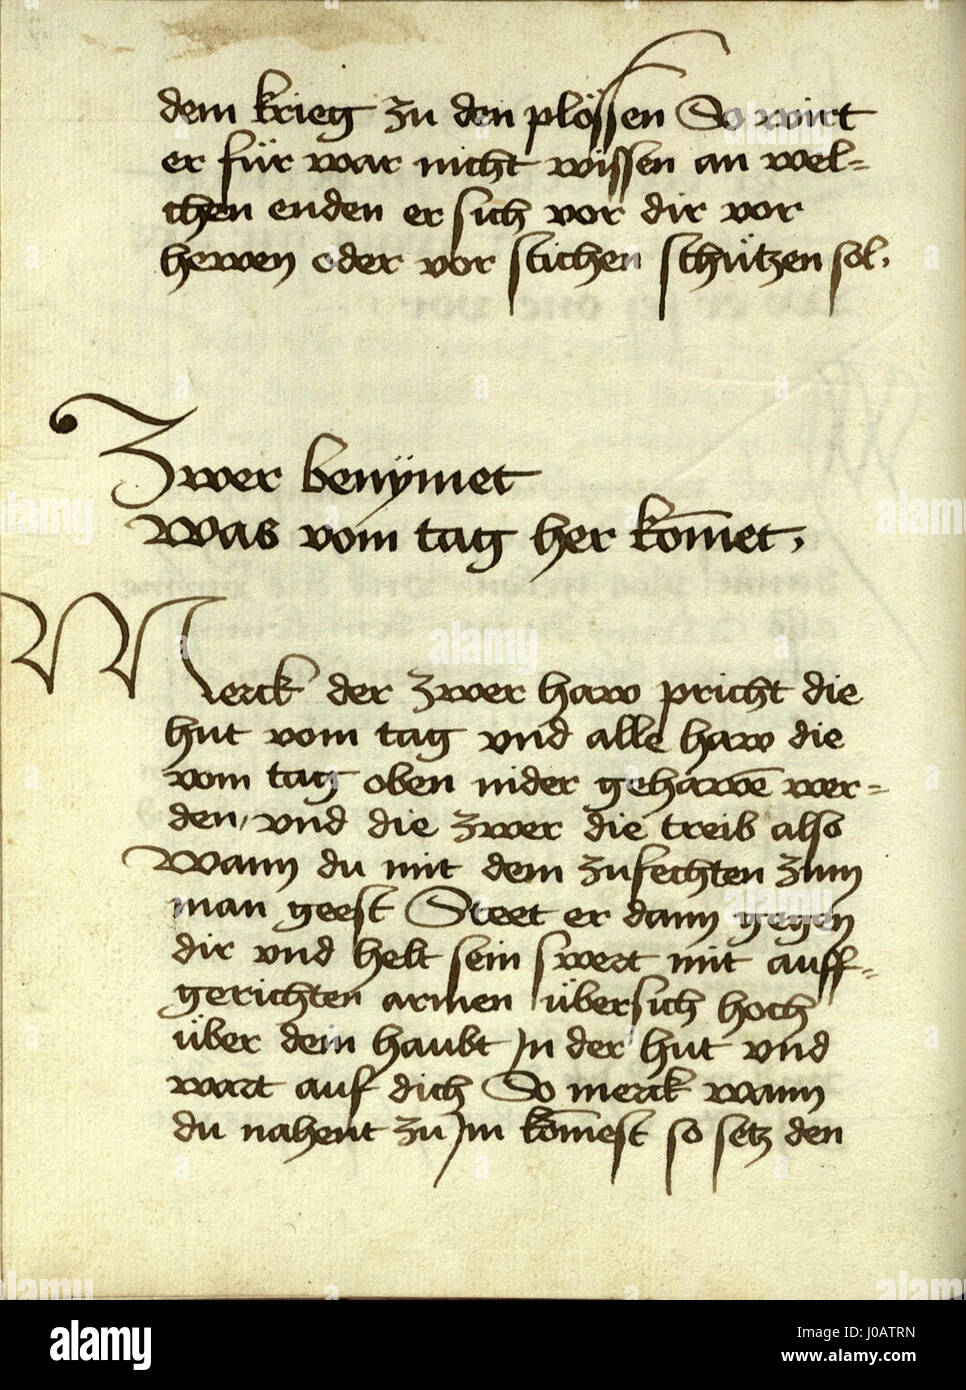 dem krieg zu den plössen So wirt
er für war nicht wissen an wel=
chen enden er sich vor dir vor
hewen oder vor stichen schützen sol.
Zwer benÿmet
Was vom tag her kom̄et.
Merck der zwer haw pricht die
hut vom tag vnd alle haw die
vom tag oben nider gehawē wer=
den, vnd die zwer die treib also
Wann du mit dem zufechten zum
man geest Steet er dann gegen
dir vnd helt sein swert mit auff=
gerichten armen übersich hoch
über dem haubt Jn der hut vnd
wart auf dich So merck wann
du nahent zu Jm kom̄est so setz den
alamy
J0ATRN
www.alamy.com